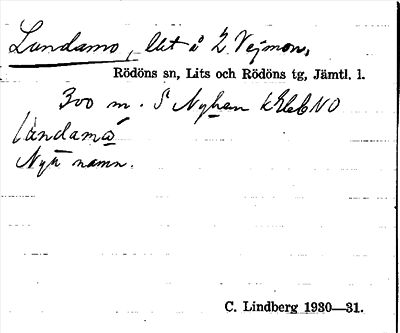 Landamo, litå Z. Vejmon,
Rödöns sn, Lits och Rödöns tg, Jämtl. l.
300 m. S Nyhen
landamå
Nytt namn.
C. Lindberg 1930—31.